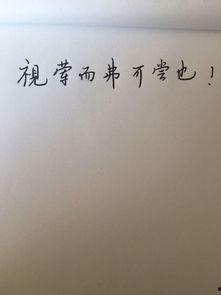 視葷而弗可尝也!